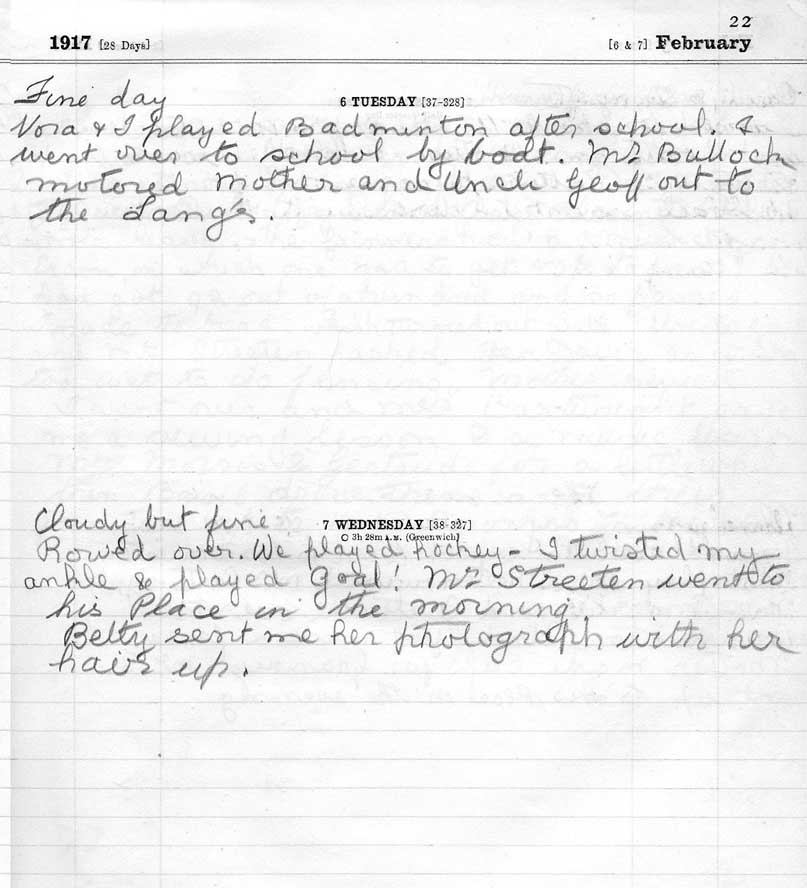 22
1917 [28 Days] [6 & 7] February
Fine day
6 TUESDAY [37-328]
Nora & I played Badminton after school. I
went over to school by boat. Mr Bullock
motored Mother and Uncle Geoff out to
the Lang's.
Cloudy but fine
7 WEDNESDAY [38-327]
○ 3h 28m A.M. (Greenwich)
Rowed over. We played hockey - I twisted my
ankle & played Goal! Mr Streeten went to
his Place in the morning
Betty sent me her photograph with her
hair up.